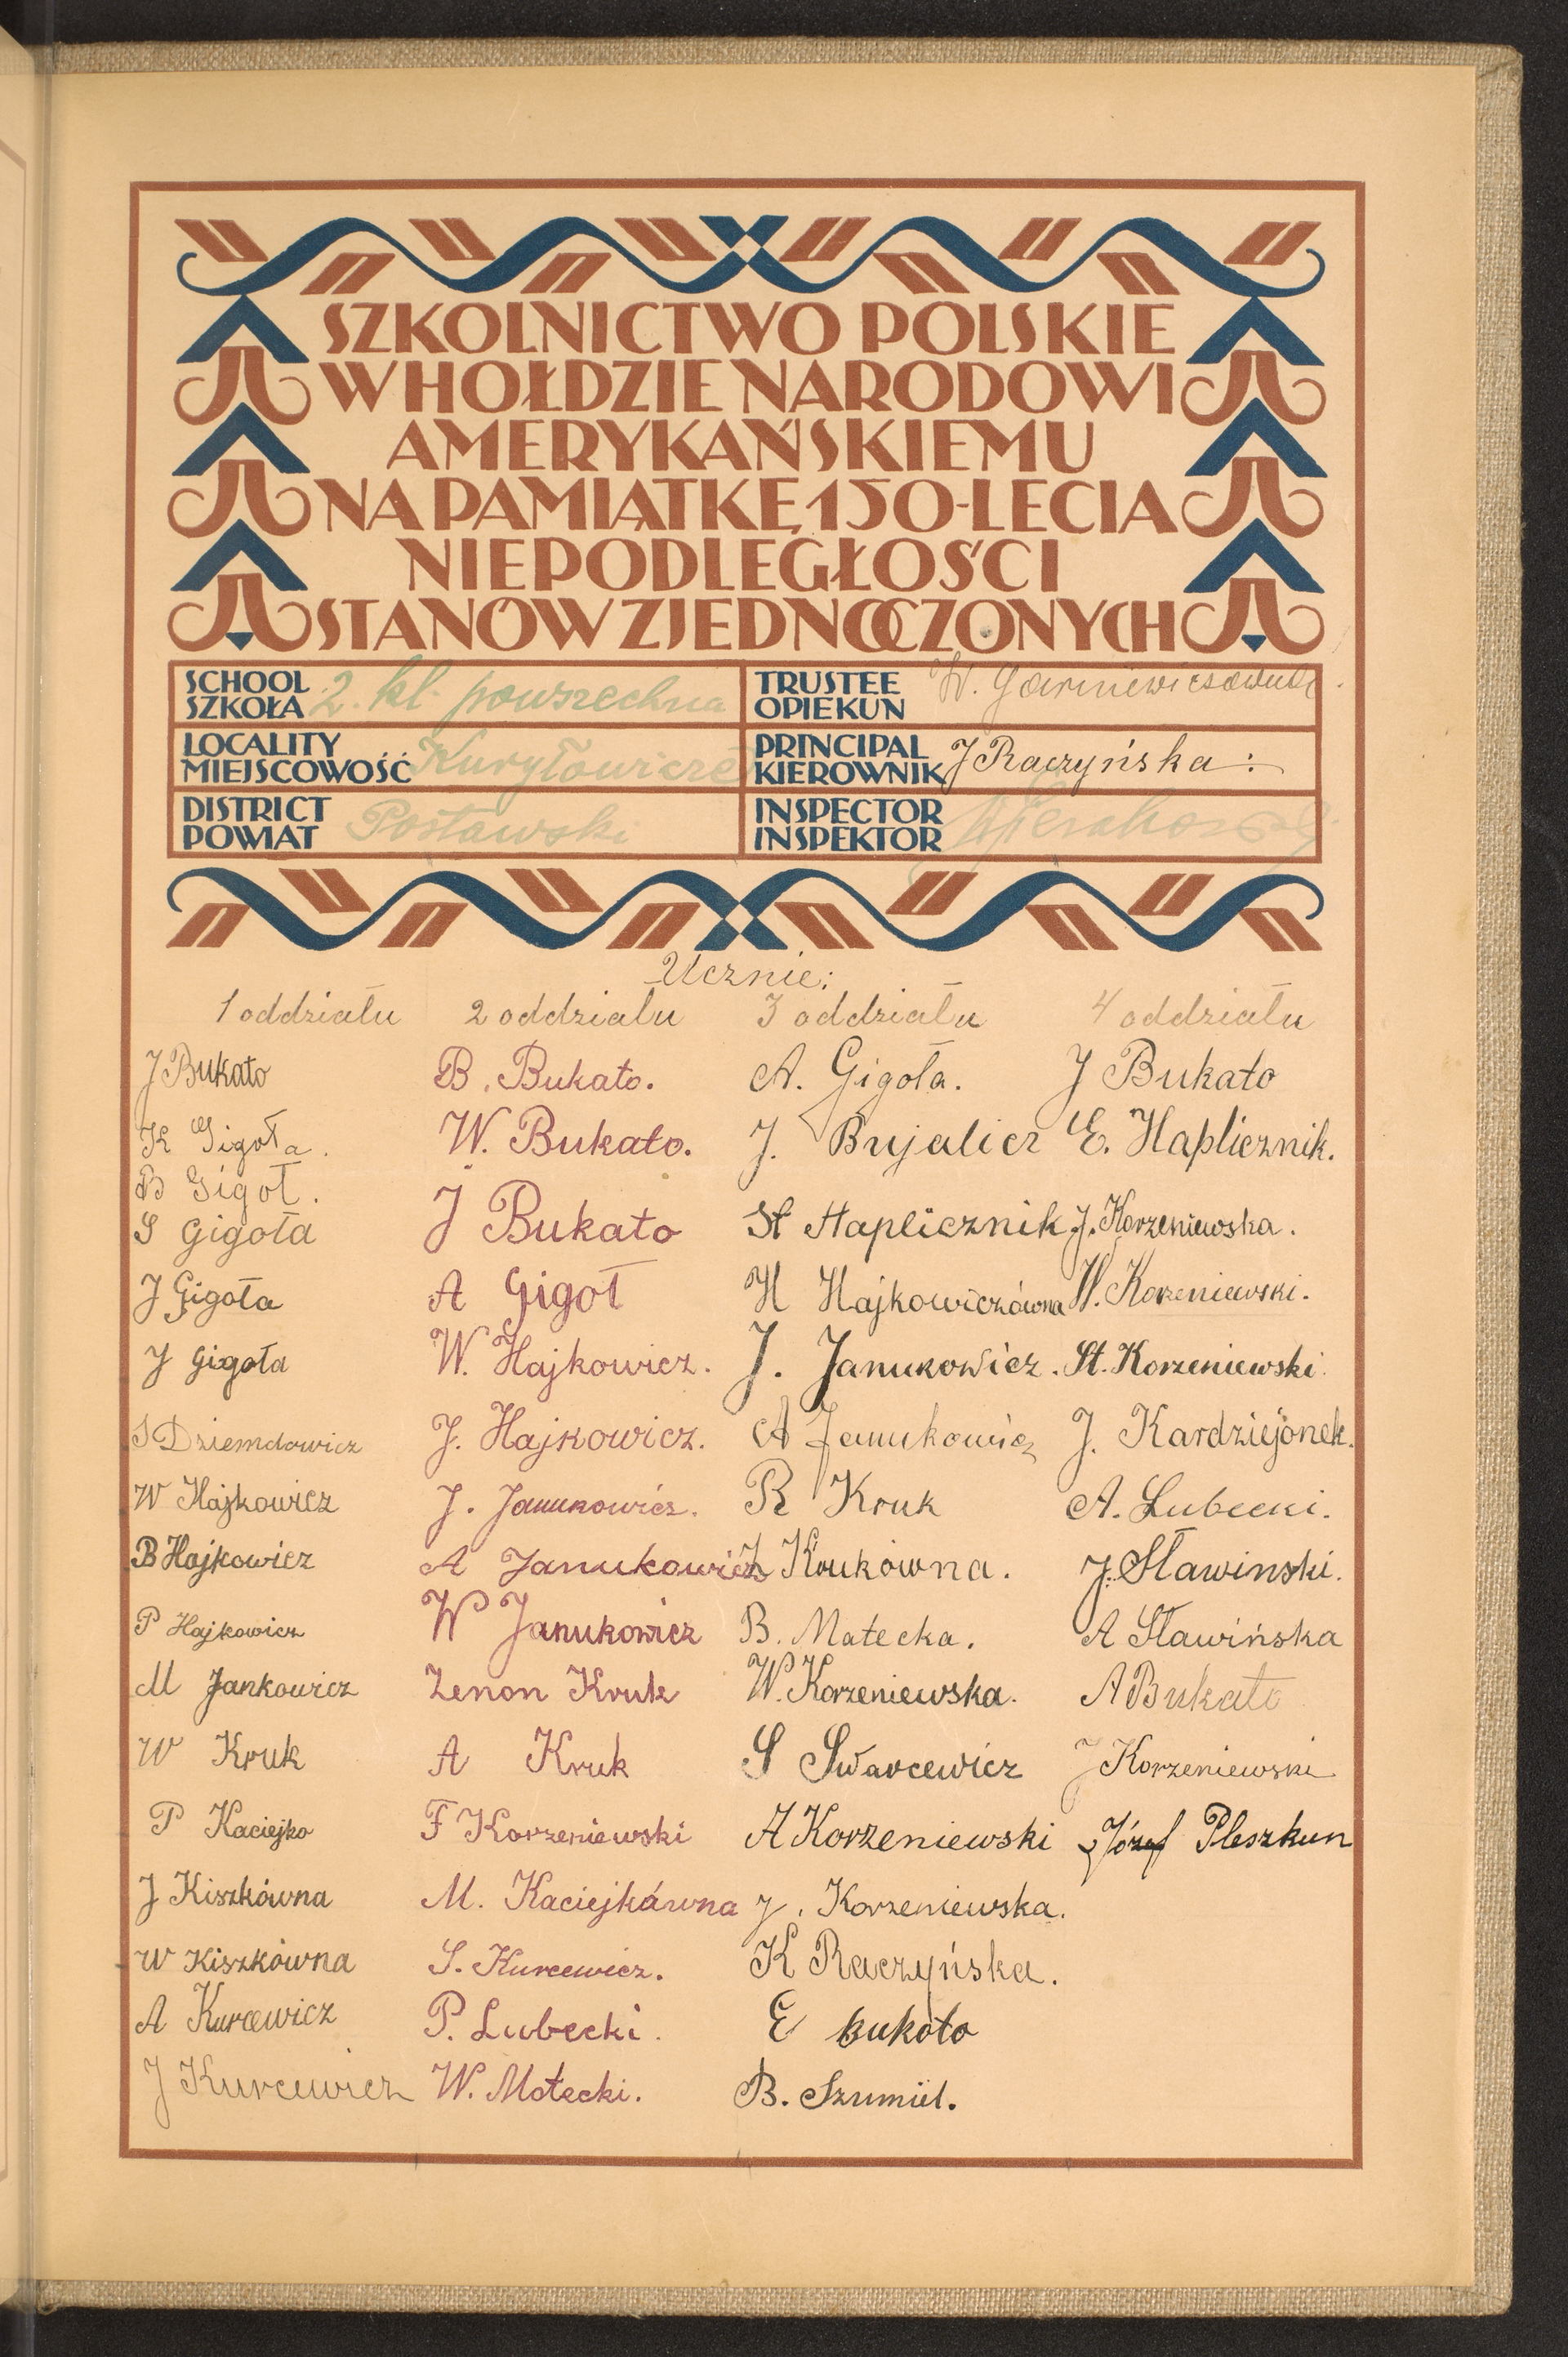 SZKOLNICTWO POLSKIE
W HOŁDZIE NARODOWI
AMERYKAŃSKIEMU
NA PAMIĄTKĘ 150-LECIA
NIEPODLEGŁOŚCI
STANÓW ZJEDNOCZONYCH
SCHOOL SZKOŁA 2. kl. powszechna
TRUSTEE OPIEKUN W.
LOCALITY MIEJSCOWOŚĆ Kuryłowicze
PRINCIPAL KIEROWNIK J Raczyńska:
DISTRICT POWIAT Postawski
INSPECTOR INSPEKTOR
Ucznie:
1 oddziału 2 oddziału 3 oddziału 4 oddziału
J Bukato B. Bukato. A. Gigoła. J Bukato
K Gigoła. W. Bukato. J. Bujalicz E. Haplicznik.
B Gigoł.
S Gigoła J Bukato St Haplicznik J. Korzeniewska.
J Gigoła A Gigoł H Hajkowiczówna W. Korzeniewski.
J Gigoła W. Hajkowicz. J. Janukowicz. St. Korzeniewski.
S Dziemdowicz J. Hajkowicz. A Janukowicz J. Kardziejonek.
W Hajkowicz J. Janukowicz. R Kruk A. Lubecki.
B Hajkowicz A Janukowicz J Krukówna. J. Sławinski.
P Hajkowicz W Janukowicz B. Małecka. A Sławińska
M Jankowicz Zenon Kruk W. Korzeniewska. A Bukato
W Kruk A Kruk S Swarcewicz J Korzeniewski
P Kaciejko F Korzeniewski A Korzeniewski Józef Pleszkun
J Kiszkówna M. Kaciejkówna J. Korzeniewska.
W Kiszkówna S. Kurcewicz. K Raczyńska.
A Kurcewicz P. Lubecki. E bukoto
J Kurcewicz W. Motecki. B. Szumiel.